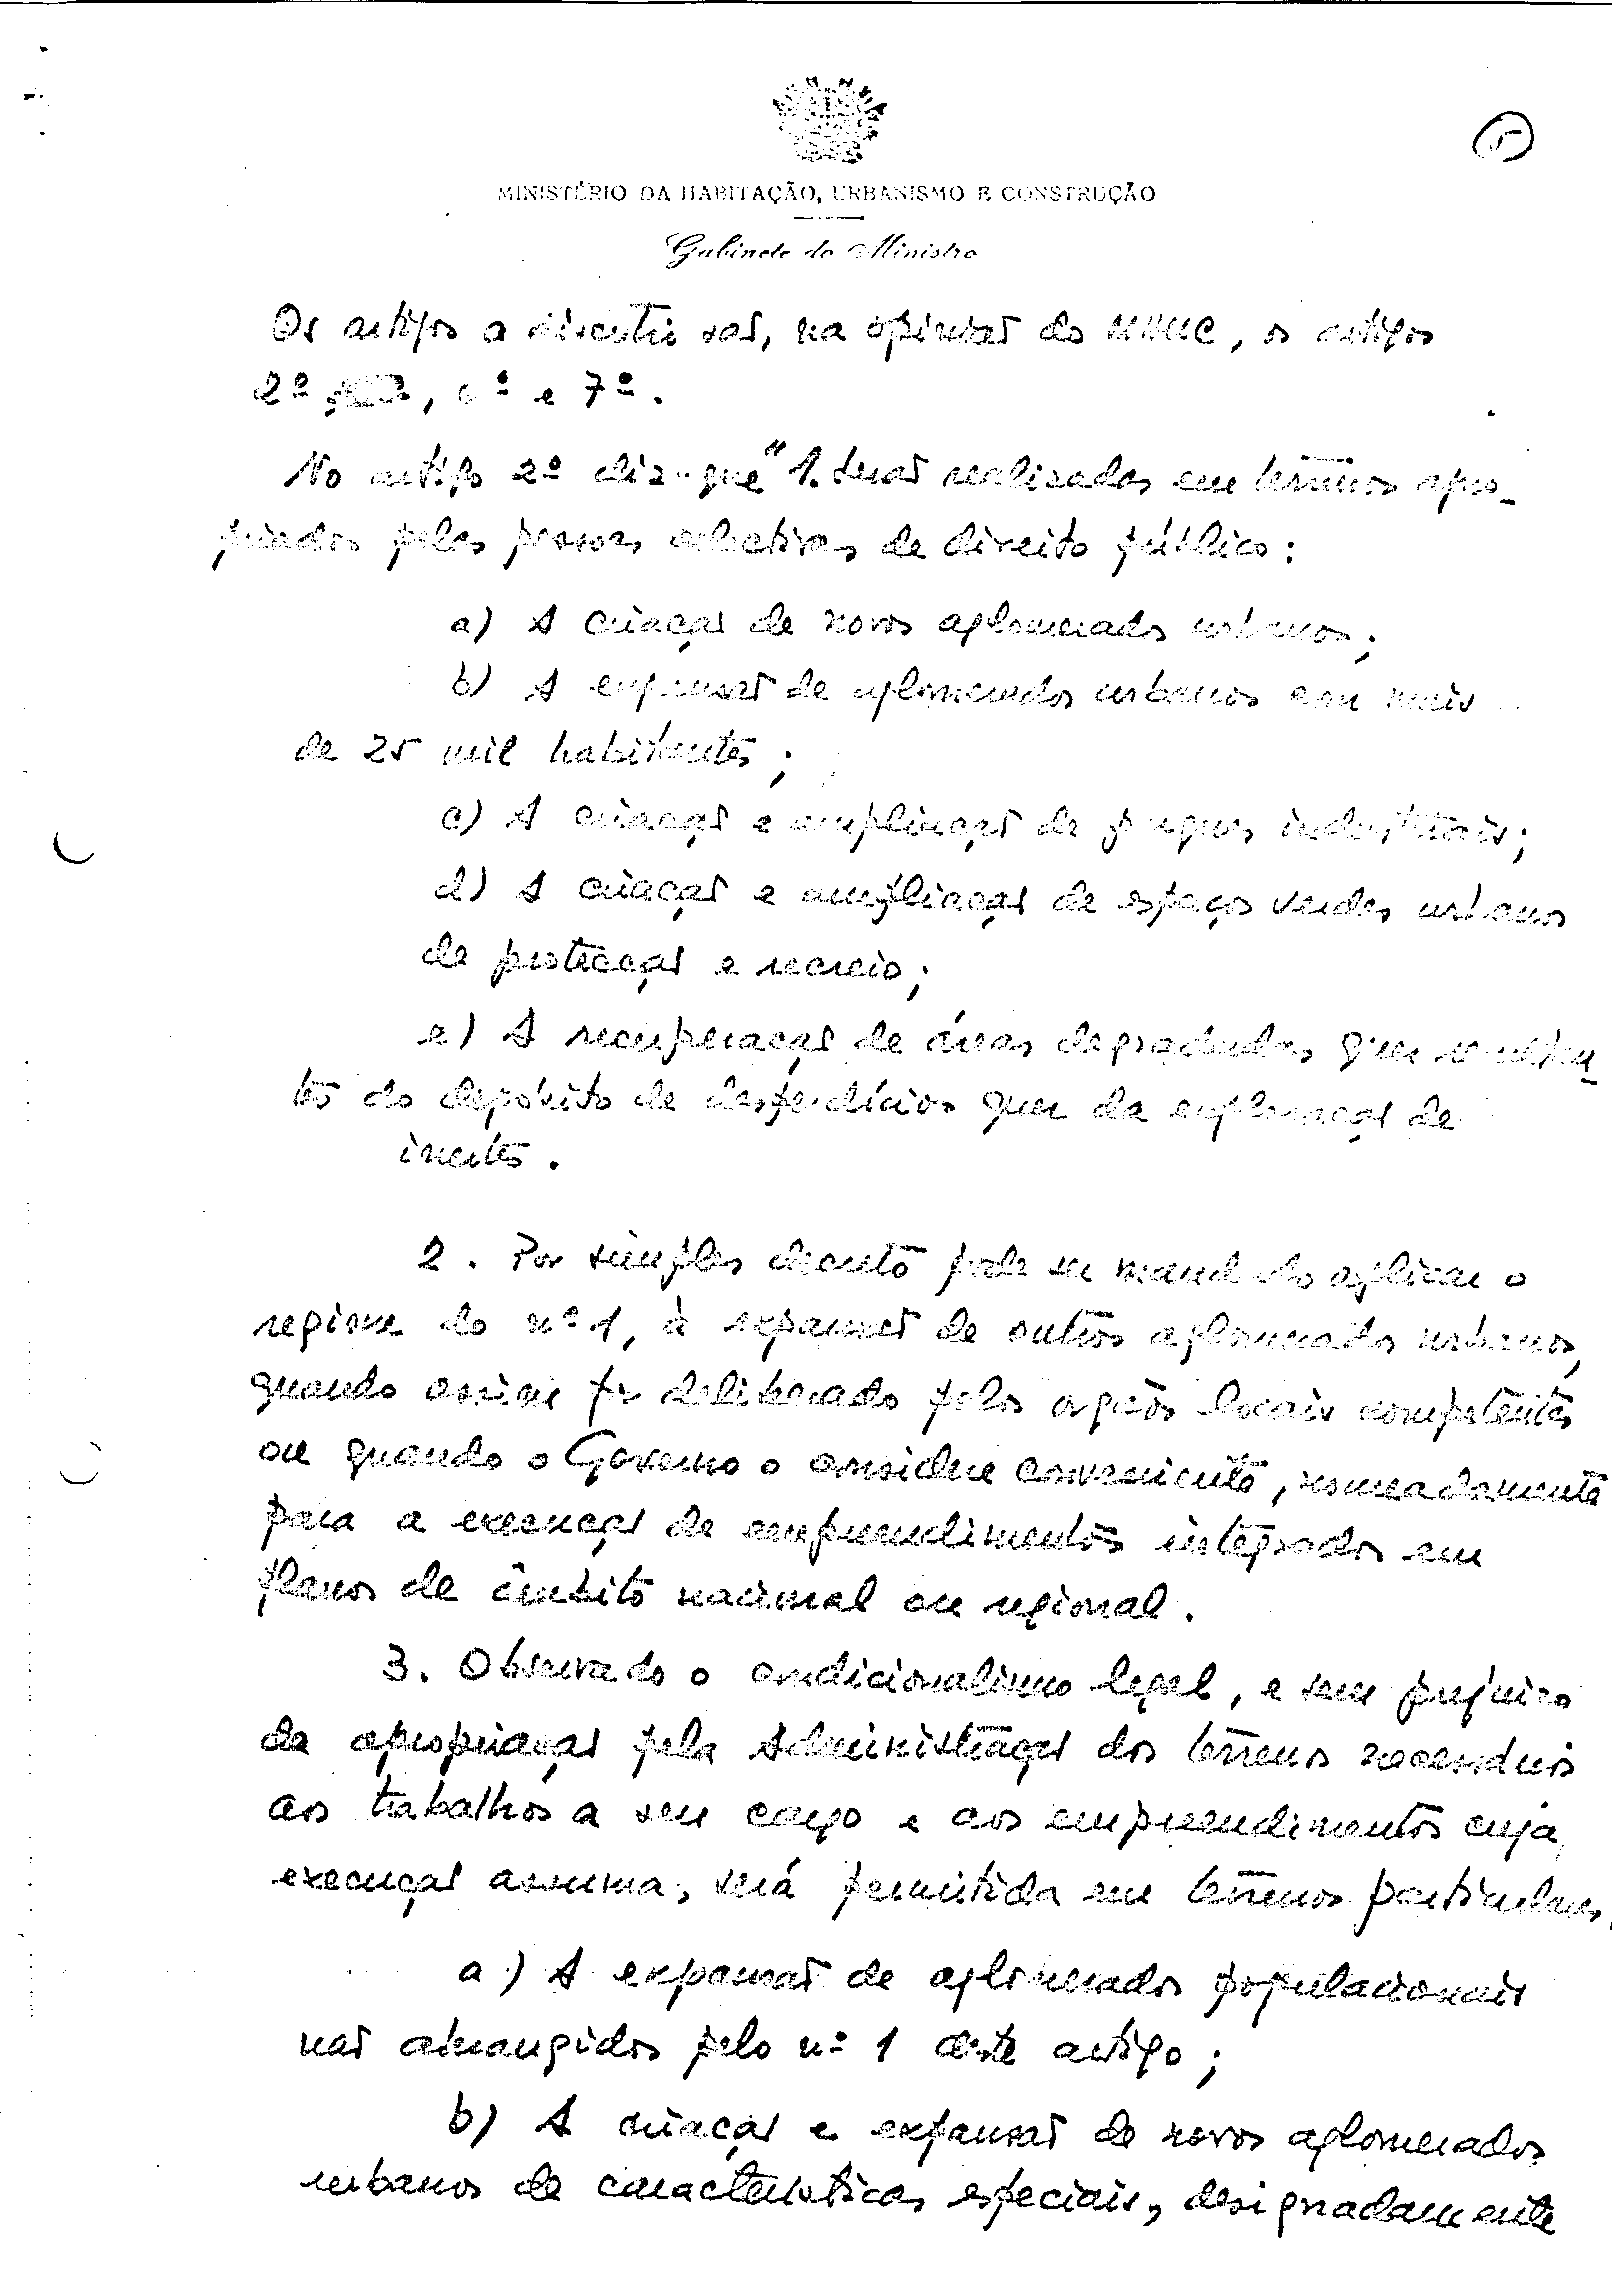 5
MINISTÉRIO DA HABITAÇÃO, URBANISMO E CONSTRUÇÃO
Gabinete do Ministro
Os artigos a discutir são, na opinião do MHUC, os artigos
2º, 6º e 7º.
No artigo 2º diz-que "1. Serão realizados em terrenos apro-
priados pelas pessoas colectivas de direito público:
a) A criação de novos aglomerados urbanos;
b) A expansão de aglomerados urbanos com mais
de 25 mil habitantes;
c) A criação e ampliação de parques industriais;
d) A criação e ampliação de espaços verdes urbanos
de protecção e recreio;
e) A recuperação de áreas degradadas quer resultan-
tes do depósito de desperdícios quer da exploração de
inertes.
2. Por simples decreto pode ser mandado aplicar o
regime do nº 1, à expansão de outros aglomerados urbanos,
quando assim for deliberado pelos orgãos locais competentes
ou quando o Governo o considere conveniente, nomeadamente
para a execução de empreendimentos integrados em
planos de âmbito nacional ou regional.
3. Observado o condicionalismo legal, e sem prejuizo
da apropriação pela Administração dos terrenos necessários
aos trabalhos a seu cargo e aos empreendimentos cuja
execução assuma, será permitida em terrenos particulares,
a) A expansão de aglomerados populacionais
não abrangidos pelo nº 1 deste artigo;
b) A criação e expansão de novos aglomerados
urbanos de características especiais, designadamente